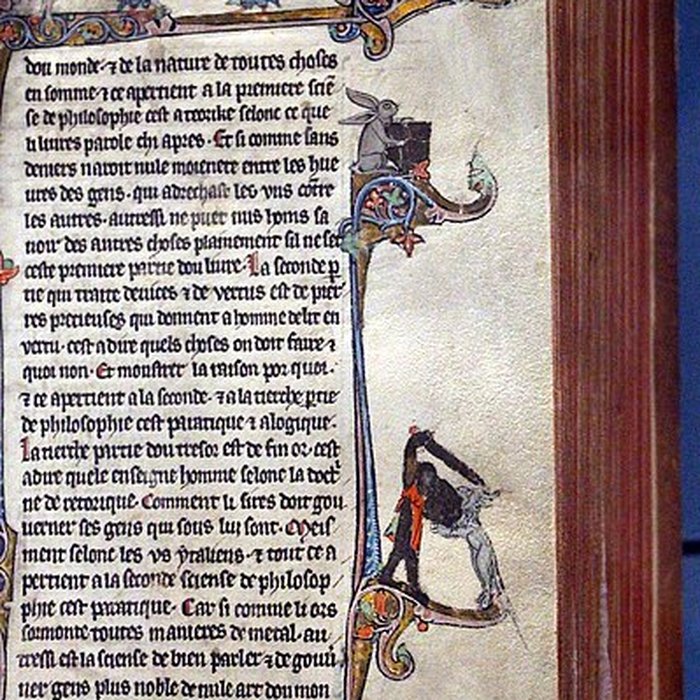 dou monde· ⁊ de la nature de toutes choses
en somme· ⁊ ce apertient a la premiere sciē
se de philosophie cest a teorike selonc ce que
li liures parole chi apres· Et si comme sans
deniers naroit nule moienete entre les hue
ures des gens· qui adrechast les vns cōtre
les autres· autressi ne puet nus homs sa
uoir des autres choses plainement sil ne set
ceste premiere partie dou liure· La seconde p
tie qui traite deuices ⁊ de vertus est de pier
res precieuses qui donnent a homme delit en
vertu· cest a dire quels choses on doit faire ⁊
quoi non· Et monstret la raison por quoi·
⁊ ce apertient a la seconde· ⁊ a la tierche ptie
de philosophie cest pratique ⁊ a logique·
La tierche partie dou tresor est de fin or· cest
a dire quele enseigne homme selonc la doct
ne de retorique· Comment li sires doit gou
uerner ses gens qui sous lui sont· Meis
ment selonc les vs ytaliens· ⁊ tout ce a
pertient a la seconde sciense de philosop
phie cest pratique· Car si comme li ors
sormonte toutes manieres de metal· au
tressi est la sciense de bien parler ⁊ de gouū
ner gens plus noble de nule art dou mon